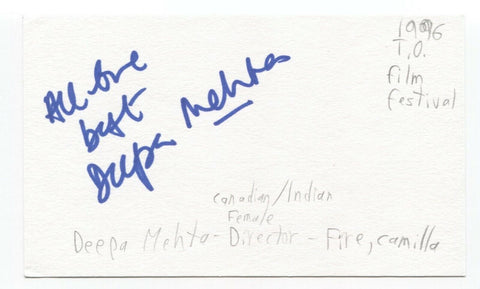 All the
best
Deepa Mehta
1996
T.O.
film
festival
Canadian/Indian
Female
Deepa Mehta - Director - Fire, camilla